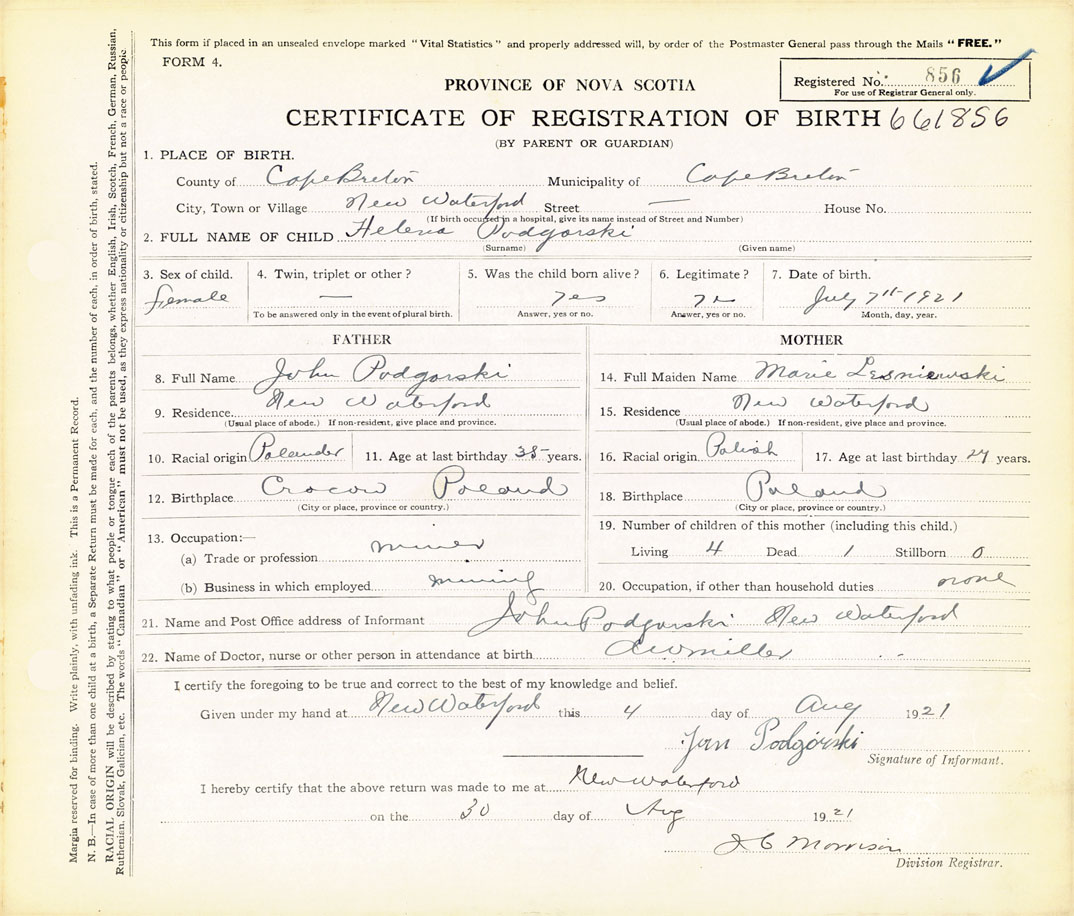 This form if placed in an unsealed envelope marked "Vital Statistics" and properly addressed will, by order of the Postmaster General pass through the Mails "FREE."
FORM 4.
Registered No. 856
For use of Registrar General only.
PROVINCE OF NOVA SCOTIA
CERTIFICATE OF REGISTRATION OF BIRTH 661856
(BY PARENT OR GUARDIAN)
1. PLACE OF BIRTH.
County of Cape Breton Municipality of Cape Breton
City, Town or Village New Waterford Street — House No.
(If birth occurred in a hospital, give its name instead of Street and Number)
2. FULL NAME OF CHILD Helena Podgorski
(Surname) (Given name)
3. Sex of child. 4. Twin, triplet or other? 5. Was the child born alive? 6. Legitimate? 7. Date of birth.
female — yes yes July 7th 1921
To be answered only in the event of plural birth. Answer, yes or no. Answer, yes or no. Month, day, year.
FATHER MOTHER
8. Full Name John Podgorski 14. Full Maiden Name Marie Lesniewski
9. Residence New Waterford 15. Residence New Waterford
(Usual place of abode.) If non-resident, give place and province. (Usual place of abode.) If non-resident, give place and province.
10. Racial origin Polander 11. Age at last birthday 35 years. 16. Racial origin Polish 17. Age at last birthday 27 years.
12. Birthplace Crocow Poland 18. Birthplace Poland
(City or place, province or country.) (City or place, province or country.)
13. Occupation:— 19. Number of children of this mother (including this child.)
(a) Trade or profession miner Living 4 Dead 1 Stillborn 0
(b) Business in which employed mining 20. Occupation, if other than household duties none
21. Name and Post Office address of Informant John Podgorski New Waterford
22. Name of Doctor, nurse or other person in attendance at birth Miller
I certify the foregoing to be true and correct to the best of my knowledge and belief.
Given under my hand at New Waterford this 4 day of Aug 1921
Jan Podgórski
Signature of Informant.
I hereby certify that the above return was made to me at New Waterford
on the 30 day of Aug 1921
J C Morrison
Division Registrar.
Margin reserved for binding. Write plainly, with unfading ink. This is a Permanent Record.
N. B.—In case of more than one child at a birth, a Separate Return must be made for each, and the number of each, in order of birth, stated.
RACIAL ORIGIN will be described by stating to what people or tongue each of the parents belongs, whether English, Irish, Scotch, French, German, Russian,
Ruthenian, Slovak, Galician, etc. The words "Canadian" or "American" must not be used, as they express nationality or citizenship but not a race or people